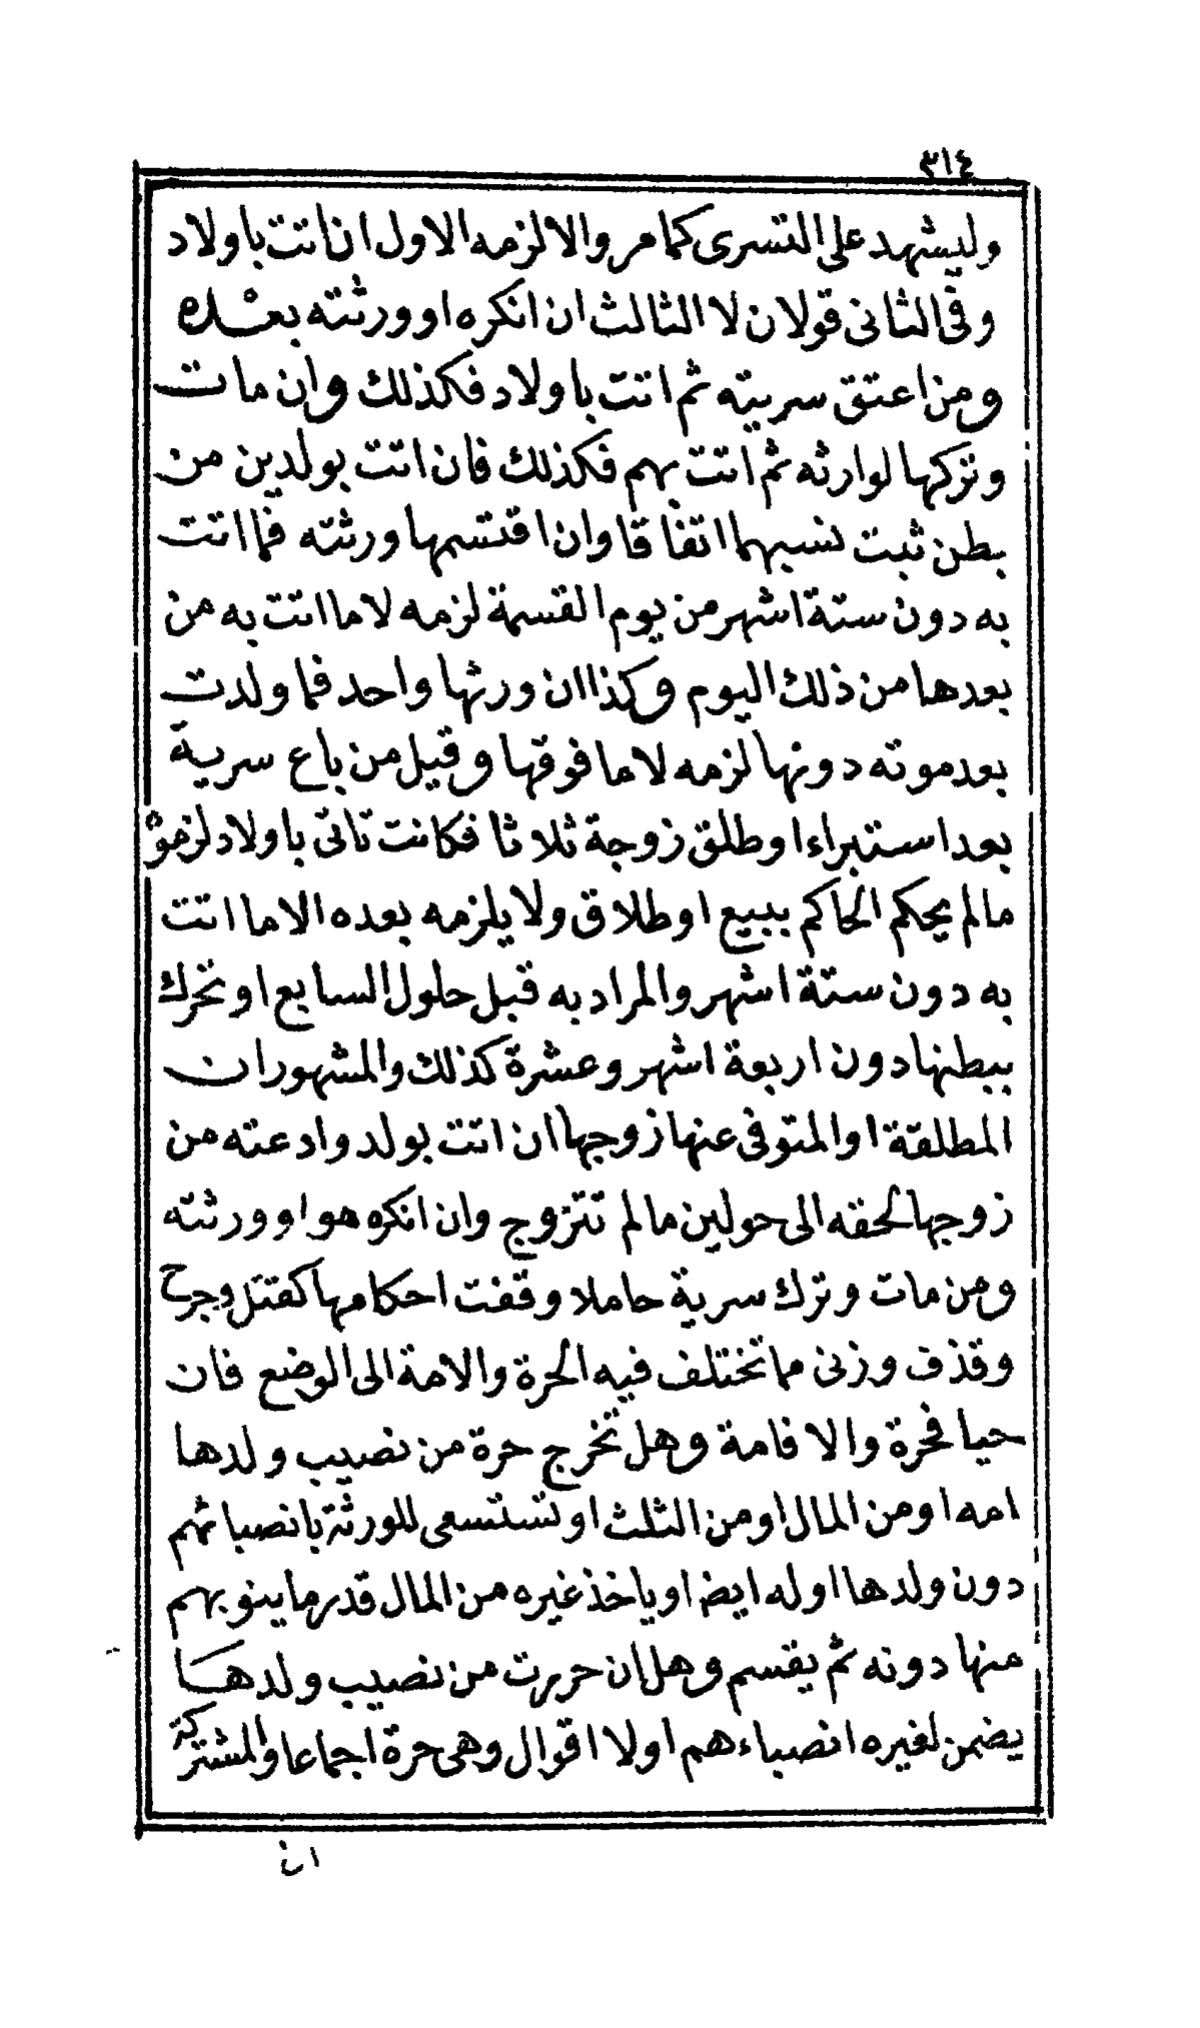 ٣١٤
وليشهد على التسرى كما مر والا لزمه الاول ان اتت باولاد
وفى الثانى قولان لا الثالث ان انكره او ورثته بعده
ومن اعتق سريته ثم اتت باولاد فكذلك وان مات
وتركها لوارثه ثم اتت بهم فكذلك فان اتت بولدين من
بطن ثبت نسبهما اتفاقا وان اقتسمها ورثته فما اتت
به دون ستة اشهر من يوم القسمة لزمه لا ما اتت به من
بعدها من ذلك اليوم وكذا ان ورثها واحد فما ولدت
بعد موته دونها لزمه لا ما فوقها وقيل من باع سرية
بعد استبراء او طلق زوجة ثلاثا فكانت تاتى باولاد لزموه
مالم يحكم الحاكم ببيع او طلاق ولا يلزمه بعده الا ما اتت
به دون ستة اشهر والمراد به قبل حلول السابع او تحرك
ببطنها دون اربعة اشهر وعشرة كذلك والمشهور ان
المطلقة او المتوفى عنها زوجها ان اتت بولد وادعته من
زوجها لحقه الى حولين مالم تتزوج وان انكره هو او ورثته
ومن مات وترك سرية حاملا وقفت احكامها كقتل وجرح
وقذف وزنى مما تختلف فيه الحرة والامة الى الوضع فان
حيا فحرة والا فامة وهل تخرج حرة من نصيب ولدها
امه او من المال او من الثلث او تستسعى للورثة بانصبائهم
دون ولدها او له ايضا او ياخذ غيره من المال قدر ما ينوبهم
منها دونه ثم يقسم وهل ان حررت من نصيب ولدها
يضمن لغيره انصباءهم اولا اقوال وهى حرة اجماعا والمشتركة
ان